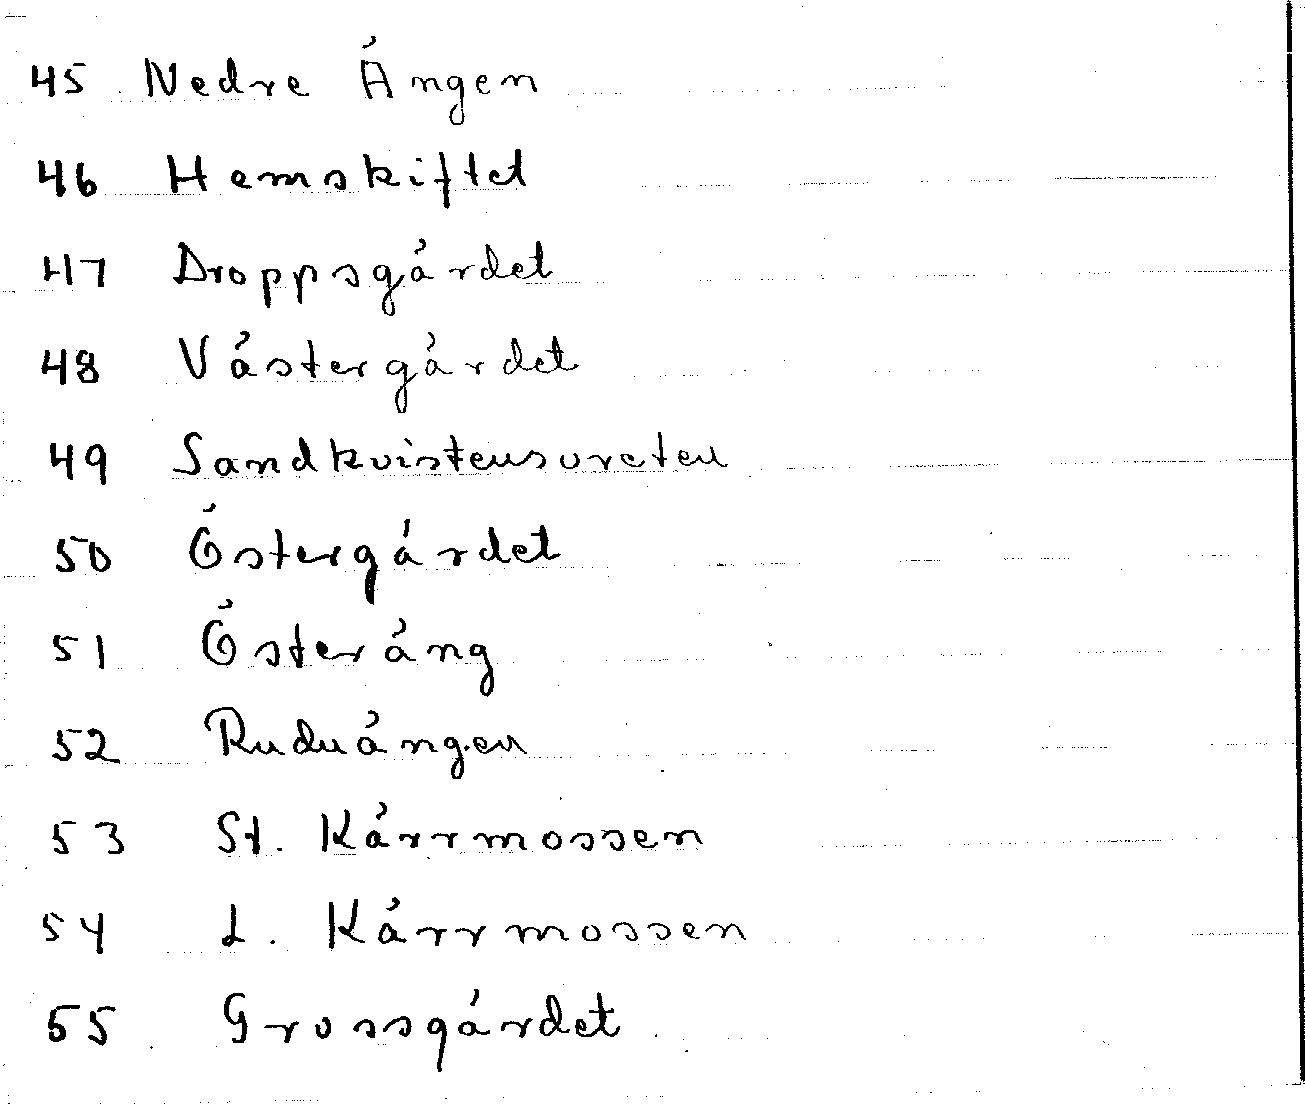 45 Nedre Ängen
46 Hemskiftet
47 Droppsgärdet
48 Västergärdet
49 Sandkvistensvreten
50 Östergärdet
51 Österäng
52 Ruduängen
53 St. Kärrmossen
54 L. Kärrmossen
55 Grossgärdet